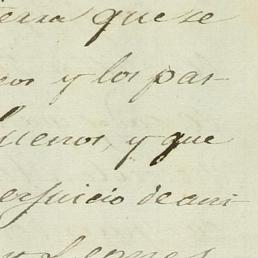 erra que se
cos y los pas-
buenos, y que
erjuicio de ani-